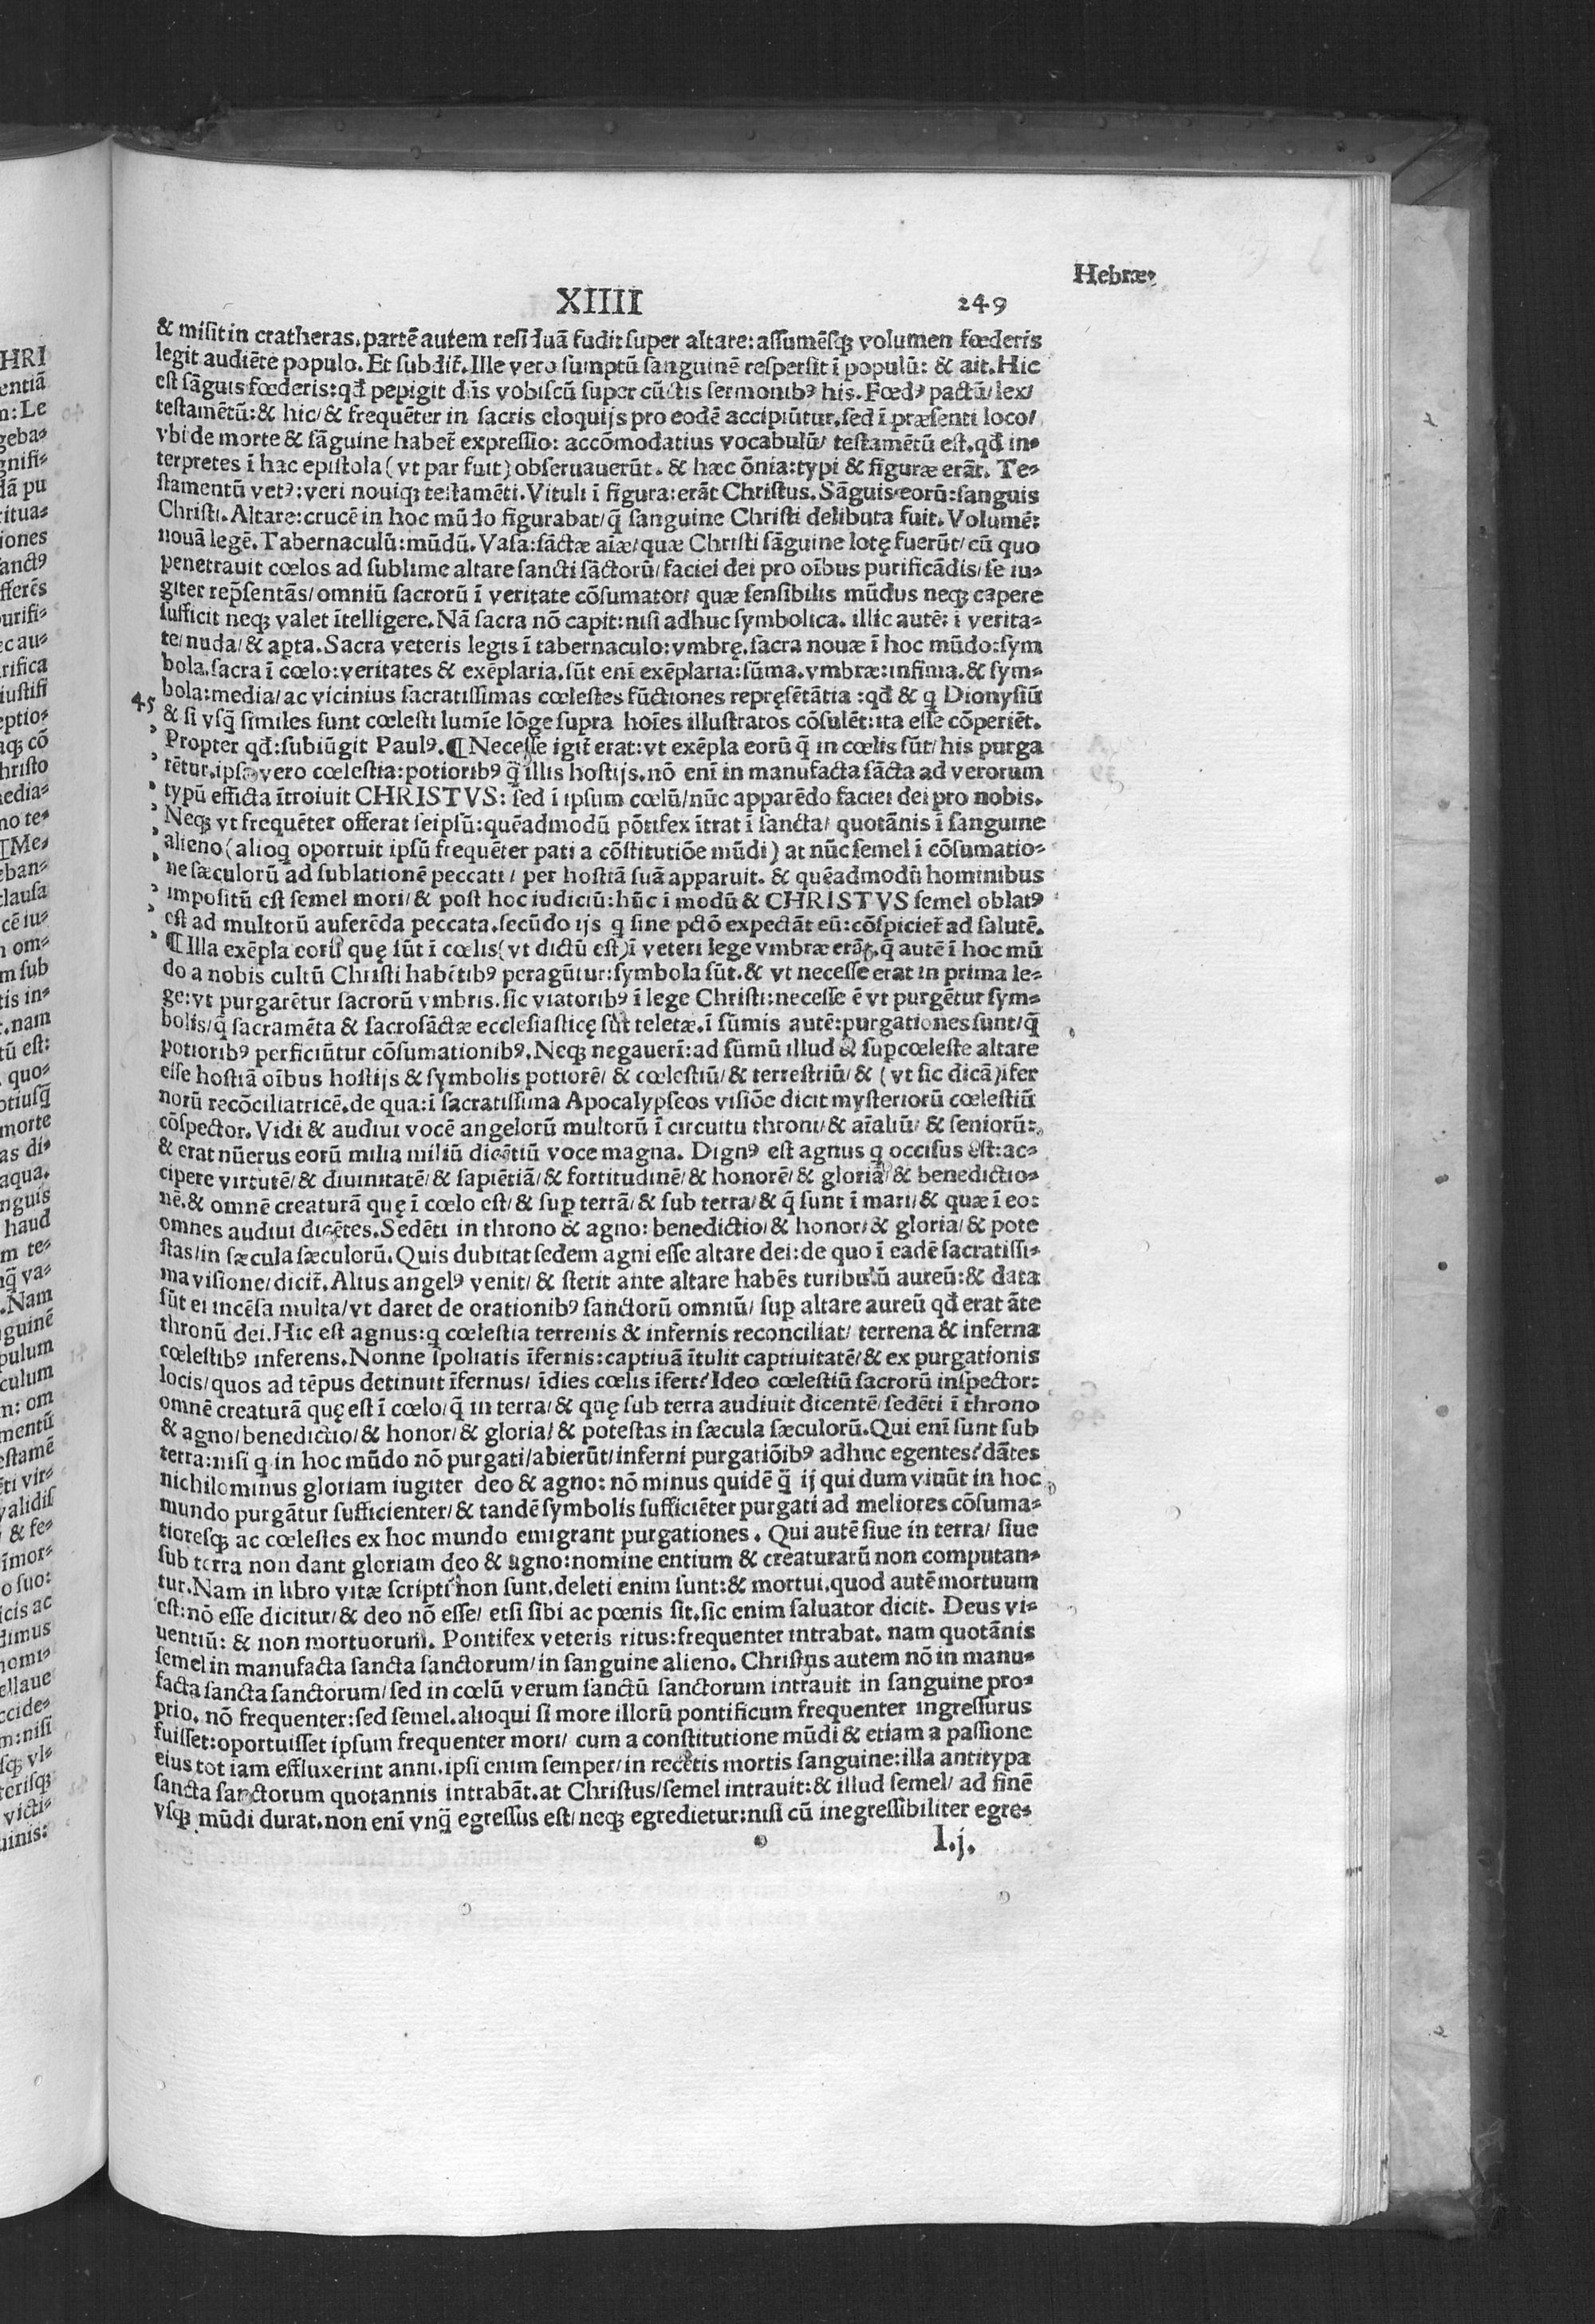 Hebræ.
XIIII 249
& misit in cratheras. partē autem residuā fudit super altare: assumēsq; volumen fœderis
legit audiēte populo. Et subdit̃. Ille vero sumptū sanguinē respersit ī populū: & ait. Hic
est sāguis fœderis: qđ pepigit dñs vobiscū super cūctis sermonibꝰ his. Fœdꝰ pactū/ lex/
testamētū: & hic/ & frequēter in sacris eloquijs pro eodē accipiūtur. sed ī præsenti loco/
vbi de morte & sāguine habet̃ expressio: accōmodatius vocabulū/ testamētū est. qđ in-
terpretes ī hac epistola (vt par fuit) obseruauerūt. & hæc ōnia: typi & figuræ erāt. Te-
stamentū vetꝰ: veri nouiq; testamēti. Vituli ī figura: erāt Christus. Sāguis eorū: sanguis
Christi. Altare: crucē in hoc mūdo figurabat/ q̄ sanguine Christi delibuta fuit. Volumē:
nouā legē. Tabernaculū: mūdū. Vasa: sāctæ aīæ/ quæ Christi sāguine lotę fuerūt/ cū quo
penetrauit cœlos ad sublime altare sancti sāctorū/ faciei dei pro oībus purificādis/ se iu-
giter rep̄sentās/ omniū sacrorū ī veritate cōsumator/ quæ sensibilis mūdus neq; capere
sufficit neq; valet ītelligere. Nā sacra nō capit: nisi adhuc symbolica. illic autē: ī verita-
te/ nuda/ & apta. Sacra veteris legis ī tabernaculo: vmbrę. sacra nouæ ī hoc mūdo: sym
bola. sacra ī cœlo: veritates & exēplaria. sūt enī exēplaria: sūma. vmbræ: infima. & sym-
bola: media/ ac vicinius sacratissimas cœlestes fūctiones repręsētātia: qđ & q Dionysiū
45 & si vsq̄ similes sunt cœlesti lumīe lōge supra hoīes illustratos cōsulēt: ita esse cōperiēt.
Propter qđ: subiūgit Paulꝰ. ¶ Necesse igit̃ erat: vt exēpla eorū q̄ in cœlis sūt/ his purga
rētur. ipsa vero cœlestia: potioribꝰ q̄ illis hostijs. nō enī in manufacta sācta ad verorum
typū efficta ītroiuit CHRISTVS: sed ī ipsum cœlū/ nūc apparēdo faciei dei pro nobis.
Neq; vt frequēter offerat seipsū: quēadmodū pōtifex ītrat ī sancta/ quotānis ī sanguine
alieno (alioq oportuit ipsū frequēter pati a cōstitutiōe mūdi) at nūc semel ī cōsumatio-
ne sæculorū ad sublationē peccati/ per hostiā suā apparuit. & quēadmodū hominibus
impositū est semel mori/ & post hoc iudiciū: hūc ī modū & CHRISTVS semel oblatꝰ
est ad multorū auferēda peccata. secūdo ijs q sine pctō expectāt eū: cōspiciet̃ ad salutē.
¶ Illa exēpla eorū quę sūt ī cœlis (vt dictū est) ī veteri lege vmbræ erāt. q̄ autē ī hoc mū
do a nobis cultū Christi habētibꝰ peragūtur: symbola sūt. & vt necesse erat in prima le-
ge: vt purgarētur sacrorū vmbris. sic viatoribꝰ ī lege Christi: necesse ē vt purgētur sym-
bolis/ q̄ sacramēta & sacrosāctæ ecclesiasticę sūt teletæ. ī sūmis autē: purgationes sunt/ q̄
potioribꝰ perficiūtur cōsumationibꝰ. Neq; negauerī: ad sūmū illud & supcœleste altare
esse hostiā oībus hostijs & symbolis potiorē/ & cœlestiū/ & terrestriū/ & (vt sic dicā) ifer
norū recōciliatricē. de qua: ī sacratissima Apocalypseos visiōe dicit mysteriorū cœlestiū
cōspector. Vidi & audiui vocē angelorū multorū ī circuitu throni/ & aīaliū/ & seniorū:
& erat nūerus eorū milia miliū dicētiū voce magna. Dignꝰ est agnus q occisus est: ac-
cipere virtutē/ & diuinitatē/ & sapiētiā/ & fortitudinē/ & honorē/ & gloriā/ & benedictio-
nē. & omnē creaturā quę ī cœlo est/ & sup terrā/ & sub terra/ & q̄ sunt ī mari/ & quæ ī eo:
omnes audiui dicētes. Sedēti in throno & agno: benedictio/ & honor/ & gloria/ & pote
stas/ in sæcula sæculorū. Quis dubitat sedem agni esse altare dei: de quo ī eadē sacratissi-
ma visione/ dicit̃. Alius angelꝰ venit/ & stetit ante altare habēs turibulū aureū: & data
sūt ei incēsa multa/ vt daret de orationibꝰ sanctorū omniū/ sup altare aureū qđ erat āte
thronū dei. Hic est agnus: q cœlestia terrenis & infernis reconciliat/ terrena & inferna
cœlestibꝰ inferens. Nonne spoliatis īfernis: captiuā ītulit captiuitatē/ & ex purgationis
locis/ quos ad tēpus detinuit īfernus/ īdies cœlis īfert? Ideo cœlestiū sacrorū inspector:
omnē creaturā quę est ī cœlo/ q̄ in terra/ & quę sub terra audiuit dicentē/ sedēti ī throno
& agno/ benedictio/ & honor/ & gloria/ & potestas in sæcula sæculorū. Qui enī sunt sub
terra: nisi q in hoc mūdo nō purgati/ abierūt/ inferni purgatiōibꝰ adhuc egentes? dātes
nichilominus gloriam iugiter deo & agno: nō minus quidē q̄ ij qui dum viuūt in hoc
mundo purgātur sufficienter/ & tandē symbolis sufficiēter purgati ad meliores cōsuma-
tioresq; ac cœlestes ex hoc mundo emigrant purgationes. Qui autē siue in terra/ siue
sub terra non dant gloriam deo & agno: nomine entium & creaturarū non computan-
tur. Nam in libro vitæ scripti non sunt. deleti enim sunt: & mortui. quod autē mortuum
est: nō esse dicitur/ & deo nō esse/ etsi sibi ac pœnis sit. sic enim saluator dicit. Deus vi-
uentiū: & non mortuorum. Pontifex veteris ritus: frequenter intrabat. nam quotānis
semel in manufacta sancta sanctorum/ in sanguine alieno. Christus autem nō in manu-
facta sancta sanctorum/ sed in cœlū verum sanctū sanctorum intrauit in sanguine pro-
prio. nō frequenter: sed semel. alioqui si more illorū pontificum frequenter ingressurus
fuisset: oportuisset ipsum frequenter mori/ cum a constitutione mūdi & etiam a passione
eius tot iam effluxerint anni. ipsi enim semper/ in recētis mortis sanguine: illa antitypa
sancta sanctorum quotannis intrabāt. at Christus/ semel intrauit: & illud semel/ ad finē
vsq; mūdi durat. non enī vnq̄ egressus est/ neq; egredietur: nisi cū inegressibiliter egre-
I.j.